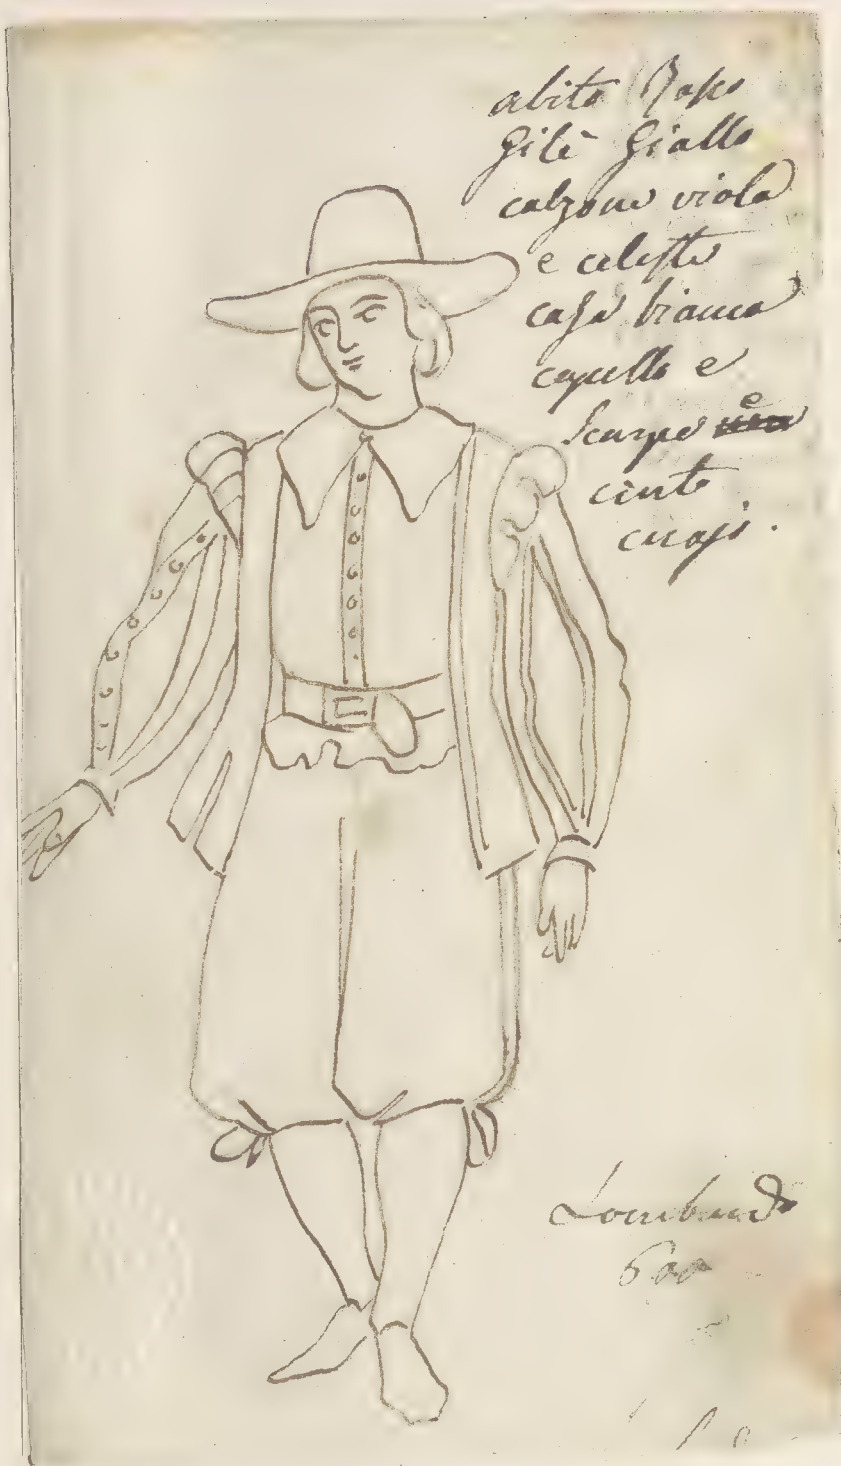 abito Rosso
Gilè Giallo
calzone viola
e celeste
casa bianca
capello e
scarpe e
cinto
Lombardo
600